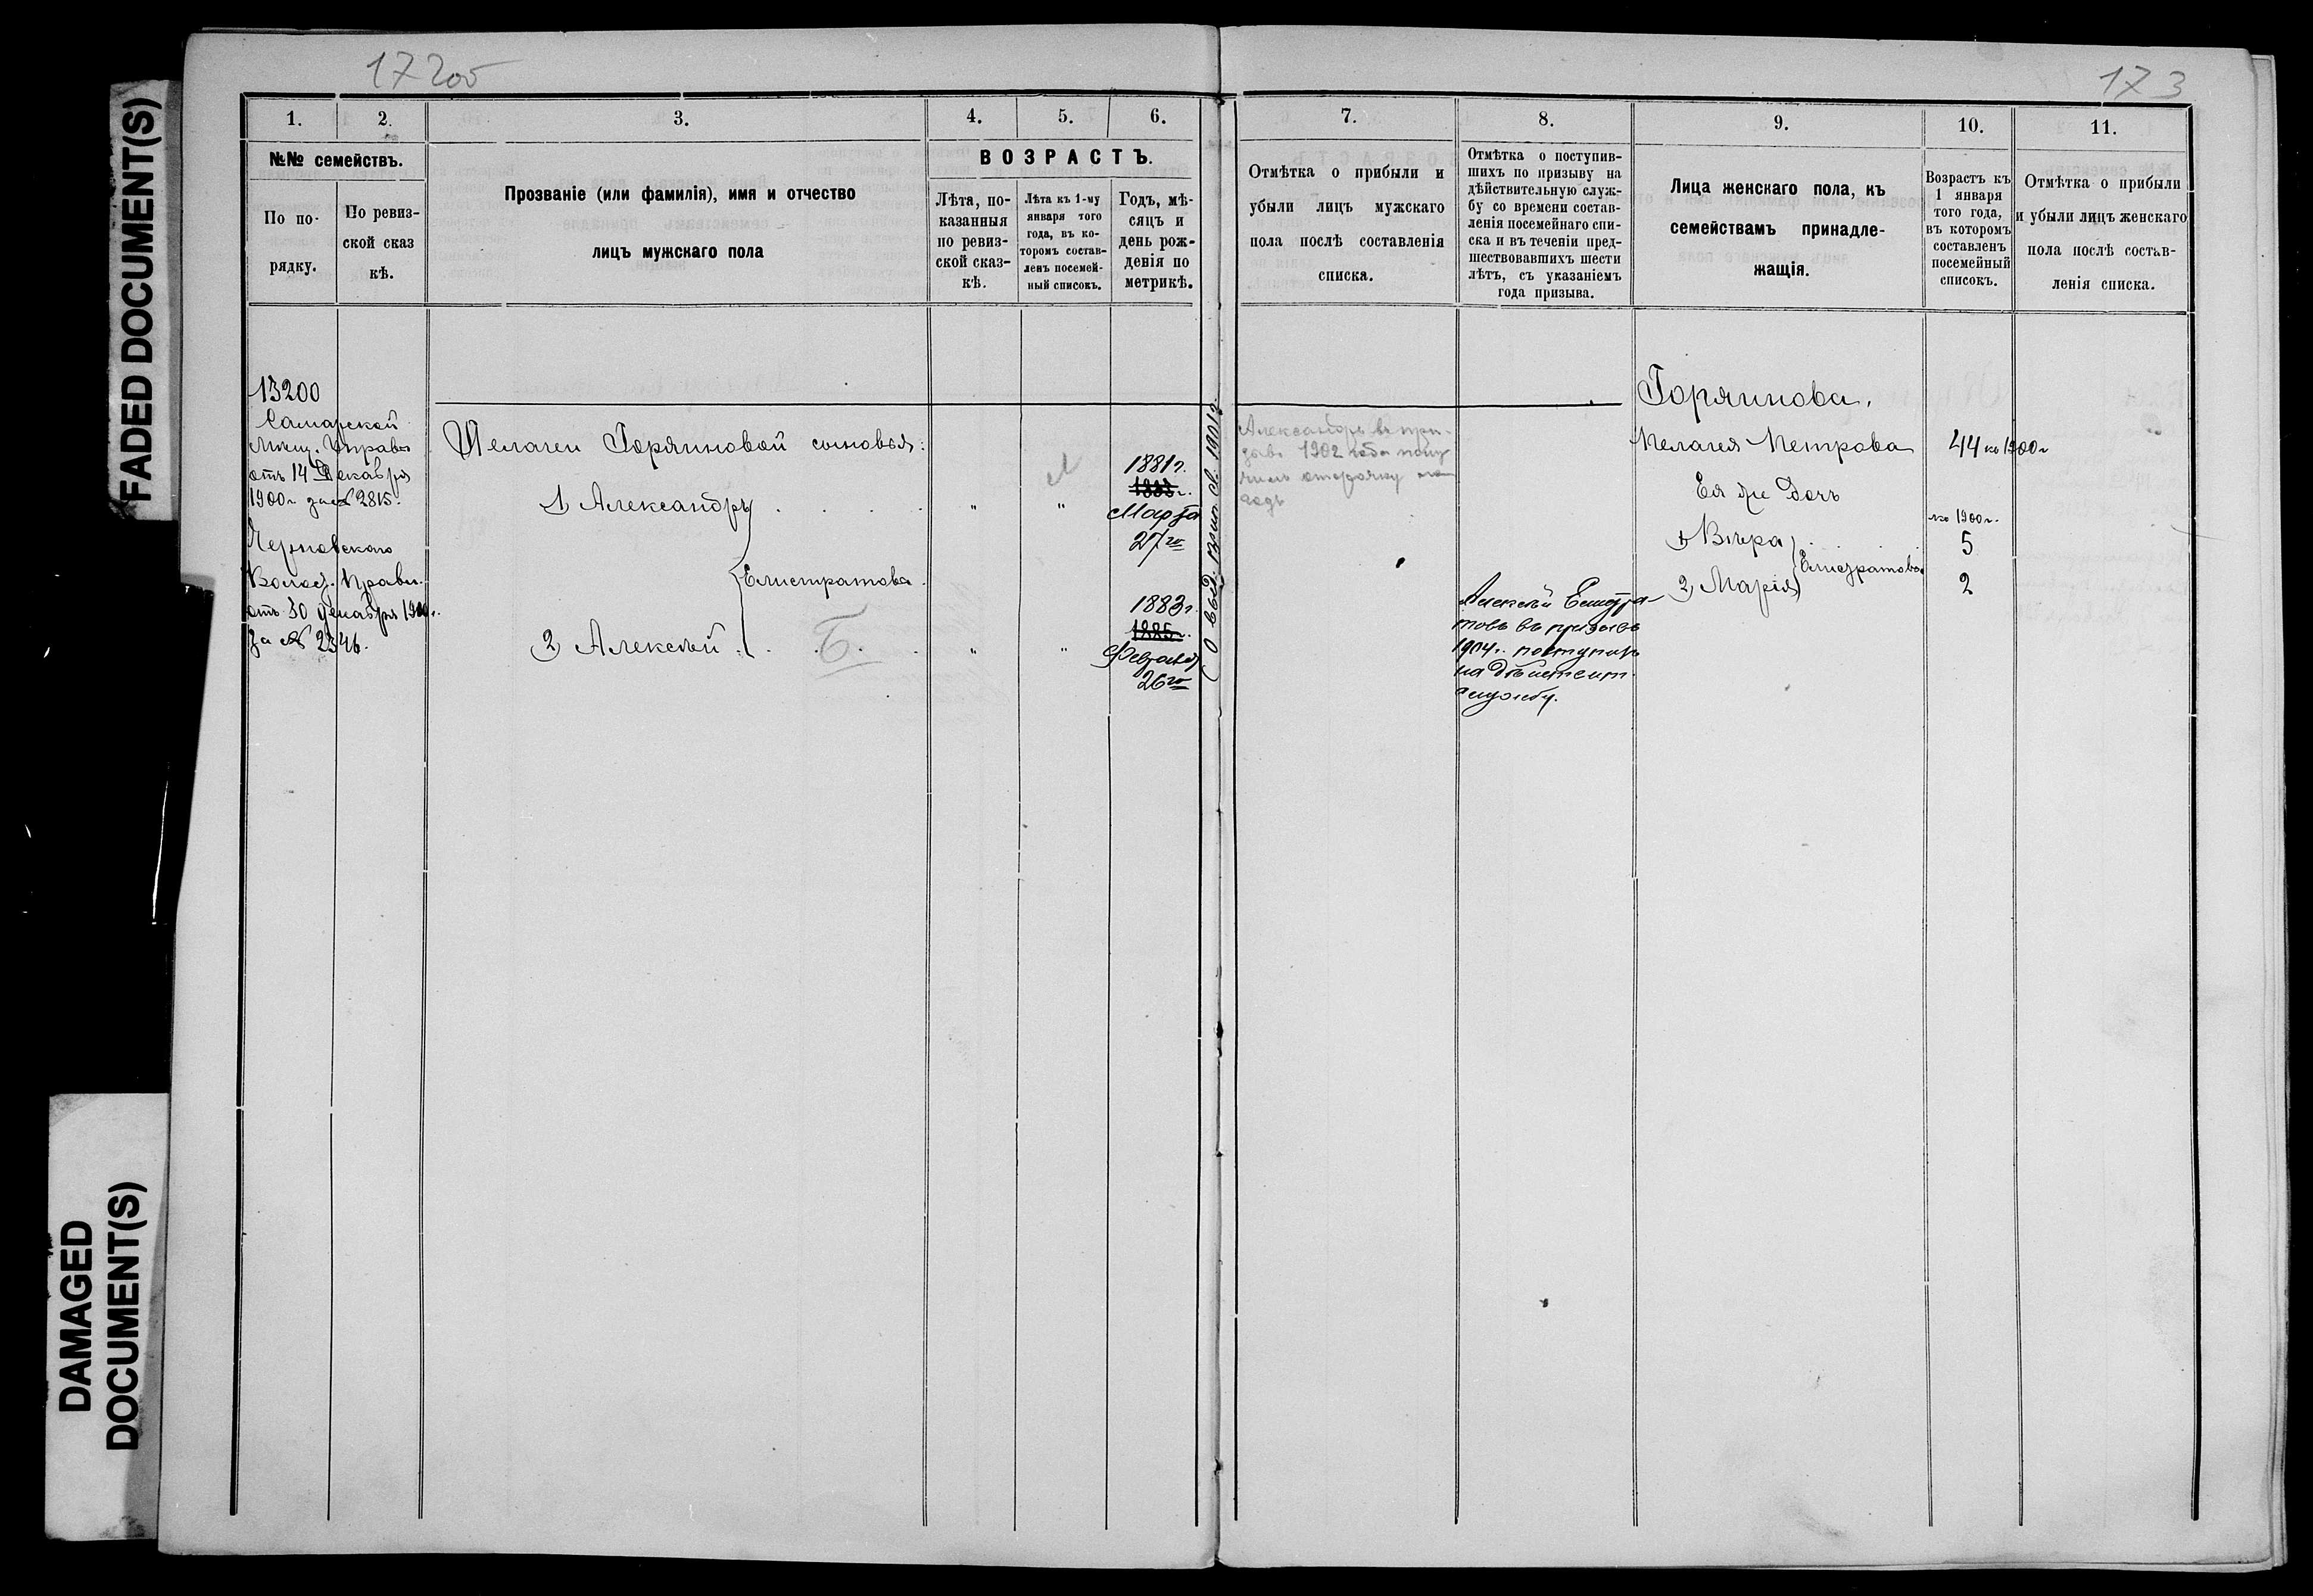 FADED DOCUMENT(S)
DAMAGED
DOCUMENT(S)
17200
173
1.
2.
3.
4.
5.
6.
№№ семействъ.
По по-
рядку.
По ревиз-
ской сказ
кѣ.
Прозваніе (или фамилія), имя и отчество
лицъ мужскаго пола
ВОЗРАСТЪ.
Лѣта, по-
казанныя
по ревиз-
ской сказ-
кѣ.
Лѣта къ 1-му
января того
года, въ ко-
торомъ состав-
ленъ посемей-
ный списокъ.
Годъ, мѣ-
сяцъ и
день рож-
денія по
метрикѣ.
7.
8.
9.
10.
11.
Отмѣтка о прибыли и
убыли лицъ мужскаго
пола послѣ составленія
списка.
Отмѣтка о поступив-
шихъ по призыву на
дѣйствительную служ-
бу со времени состав-
ленія посемейнаго спи-
ска и въ теченіи пред-
шествовавшихъ шести
лѣтъ, съ указаніемъ
года призыва.
Лица женскаго пола, къ
семействамъ принадле-
жащія.
Возрастъ къ
1 января
того года,
въ которомъ
составленъ
посемейный
списокъ.
Отмѣтка о прибыли
и убыли лицъ женскаго
пола послѣ состав-
ленія списка.
13200
Самарской
Мѣщ. Управы
отъ 14 Декабря
1900 г за № 2815.
Черновскаго
Волост. Правл.
отъ 30 декабря 1900 г.
за № 2346.
Пелагеи Горяиновой сыновья:
1) Александръ
Елистратовы
2) Алексѣй
Б
1881 г.
1883 г.
Марта
27го
1883 г.
1885 г.
Февраля
26го
1901 г.
Александръ въ при-
зывъ 1902 года полу
чилъ отсрочку на
годъ
Алексѣй Елистра-
товъ въ призывъ
1904 г. поступилъ
на дѣйствит.
службу.
Горяинова.
Пелагея Петрова
44 къ 1900 г
Ея же Дочь
къ 1900 г.
1) Вѣра
5
Елистратовы
2) Марія
2